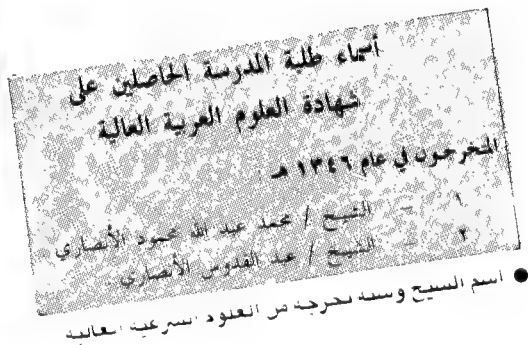 أسماء طلبة المدرسة الحاصلين على
شهادة العلوم العربية العالية
المتخرجون في عام ١٣٤٦ هـ
١ – الشيخ / محمد عبد الله محمود الأنصاري
٢ – الشيخ / عبد القدوس الأنصاري
● اسم الشيخ وسنة تخرجه من العلوم الشرعية العالية